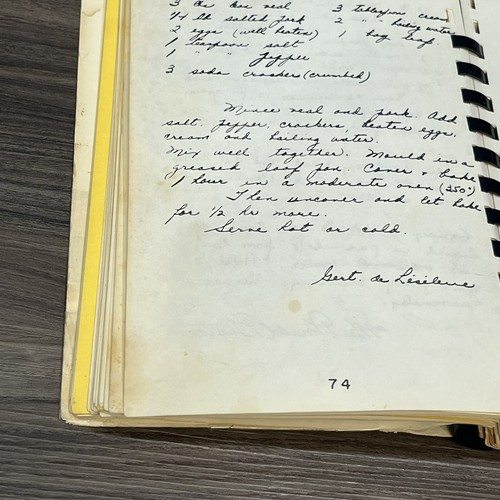 3 lbs lean veal 3 tablespoons cream
1/4 lb salted pork 2 " boiling water
2 eggs (well beaten) 1 bay leaf
1 teaspoon salt
1 " pepper
3 soda crackers (crumbed)
Mince veal and pork. Add
salt. pepper, crackers, beaten eggs.
cream and boiling water.
Mix well together. Mould in a
greased loaf pan. Cover + bake
1 hour in a moderate oven (350°)
Then uncover and let bake
for 1/2 hr more.
Serve hot or cold.
Gert. de
74